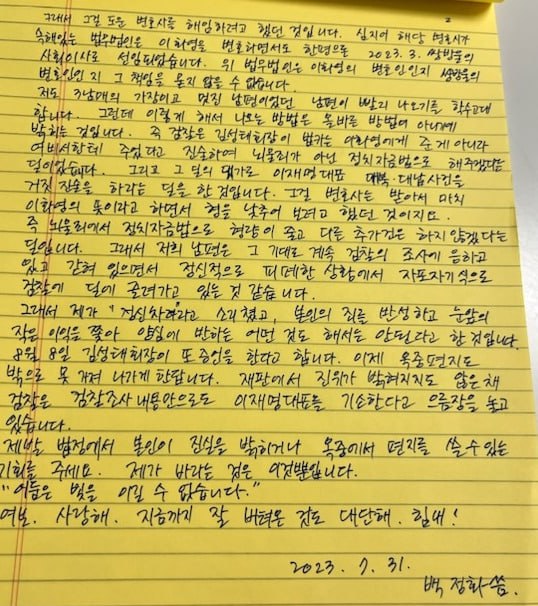 2
그래서 그걸 또문 변호사를 해임하려고 했던 것입니다. 심지어 해당 변호사가
속해있는 법무법인은 이화영을 변호하면서도 한편으로 2023. 3. 쌍방울의
사외이사로 선임되었습니다. 위 법무법인은 이화영의 변호인인지 쌍방울의
변호인인지 그 책임을 묻지 않을 수 없습니다.
저도 3남매의 가장이고 멋진 남편이었던 남편이 빨리 나오기를 학수고대
합니다. 그런데 이렇게 해서 나오는 방법은 올바른 방법이 아니기에
밝히는 것입니다. 즉 검찰은 김성태회장이 법카는 이화영에게 준 게 아니라
여비서한테 주었다고 진술하여 뇌물죄가 아닌 정치자금법으로 해주겠다는
딜이었습니다. 그리고 그 딜의 댓가로 이재명대표 대북·대납사건을
거짓 진술을 하라는 딜을 한 것입니다. 그걸 변호사는 받아서 마치
이화영의 뜻이라고 하면서 형을 낮추어 보려고 했던 것이지요.
즉 뇌물죄에서 정치자금법으로 형량이 줄고 다른 추가건은 하지 않겠다는
딜입니다. 그래서 저희 남편은 그 기대로 계속 검찰의 조사에 응하고
있고 갇혀 있으면서 정신적으로 피폐한 상황에서 자포자기식으로
검찰에 딜에 끌려가고 있는 것 같습니다.
그래서 제가 "정신차려라"고 소리쳤고, 본인의 죄를 반성하고 눈앞의
작은 이익을 쫓아 양심에 반하는 어떤 것도 해서는 안된다고 한 것입니다.
8월 8일 김성태회장이 또 증언을 한다고 합니다. 이제 옥중편지도
밖으로 못 가져 나가게 한답니다. 재판에서 진위가 밝혀지지도 않은 채
검찰은 검찰조사 내용만으로도 이재명대표를 기소한다고 으름장을 놓고
있습니다.
제발 법정에서 본인이 진실을 밝히거나 옥중에서 편지를 쓸 수 있는
기회를 주세요. 제가 바라는 것은 이것뿐입니다.
"어둠은 빛을 이길 수 없습니다."
여보. 사랑해. 지금까지 잘 버텨온 것도 대단해. 힘내!
2023. 7. 31.
백정화 씀.